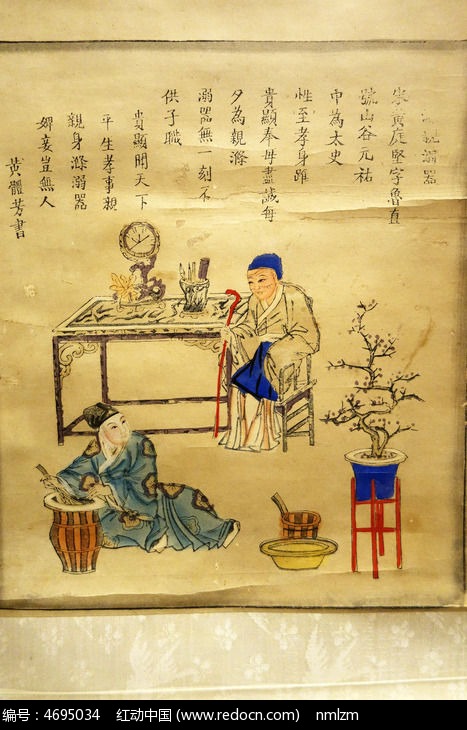 親溺器
宋黃庭堅字魯直
號山谷元祐
中為太史
性至孝身雖
貴顯奉母盡誠每
夕為親滌
溺器無一刻不
供子職
貴顯聞天下
平生孝事親
親身滌溺器
婢妾豈無人
黃體芳書
编号：4695034 红动中国 (www.redocn.com) nmlzm